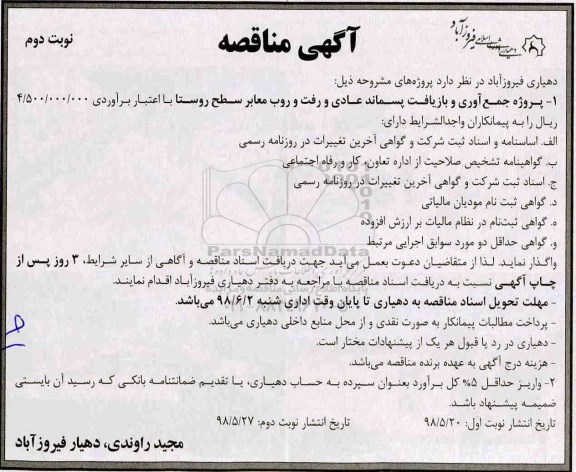 دهیاری و شورای اسلامی فیروزآباد
آگهی مناقصه
نوبت دوم
دهیاری فیروزآباد در نظر دارد پروژه‌های مشروحه ذیل:
۱- پروژه جمع‌آوری و بازیافت پسماند عادی و رفت و روب معابر سطح روستا با اعتبار برآوردی ۴/۵۰۰/۰۰۰/۰۰۰
ریال را به پیمانکاران واجدالشرایط دارای:
الف. اساسنامه و اسناد ثبت شرکت و گواهی آخرین تغییرات در روزنامه رسمی
ب. گواهینامه تشخیص صلاحیت از اداره تعاون، کار و رفاه اجتماعی
ج. اسناد ثبت شرکت و گواهی آخرین تغییرات در روزنامه رسمی
د. گواهی ثبت نام مودیان مالیاتی
ه. گواهی ثبت‌نام در نظام مالیات بر ارزش افزوده
و. گواهی حداقل دو مورد سوابق اجرایی مرتبط
ParsNamadData
واگذار نماید. لذا از متقاضیان دعوت بعمل می‌آید جهت دریافت اسناد مناقصه و آگاهی از سایر شرایط، ۳ روز پس از
چاپ آگهی نسبت به دریافت اسناد مناقصه با مراجعه به دفتر دهیاری فیروزآباد اقدام نمایند.
- مهلت تحویل اسناد مناقصه به دهیاری تا پایان وقت اداری شنبه ۹۸/۶/۲ می‌باشد.
- پرداخت مطالبات پیمانکار به صورت نقدی و از محل منابع داخلی دهیاری می‌باشد.
- دهیاری در رد یا قبول هر یک از پیشنهادات مختار است.
- هزینه درج آگهی به عهده برنده مناقصه می‌باشد.
۲- واریز حداقل ۵% کل برآورد بعنوان سپرده به حساب دهیاری، یا تقدیم ضمانتنامه بانکی که رسید آن بایستی
ضمیمه پیشنهاد باشد.
تاریخ انتشار نوبت اول: ۹۸/۵/۲۰ تاریخ انتشار نوبت دوم: ۹۸/۵/۲۷
مجید راوندی، دهیار فیروزآباد